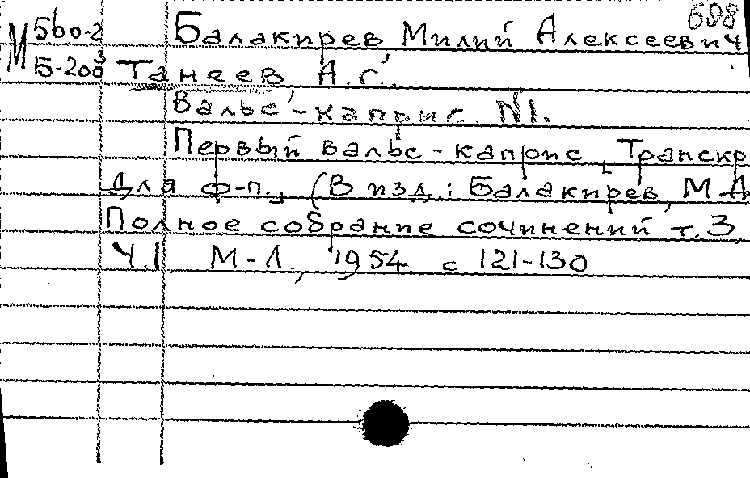 698
М 560-2 Балакирев Милий Алексеевич
Б-200³ Танеев А.С.
Вальс-каприс N1.
Первый вальс-каприс, Транскр
для ф-п., (В изд.: Балакирев, М.А
Полное собрание сочинений т.3
ч.1 М-Л, 1954 с 121-130